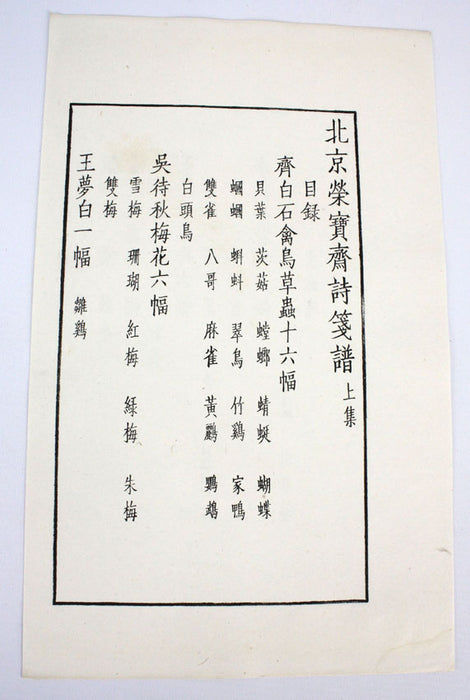 北京榮寶齋詩箋譜 上集
目録
齊白石禽鳥草蟲十六幅
貝葉 茨菇 螳螂 蜻蜓 蝴蝶
蟈蟈 蝌蚪 翠鳥 竹鷄 家鴨
雙雀 八哥 麻雀 黃鸝 鸚鵡
白頭鳥
吳待秋梅花六幅
雪梅 珊瑚 紅梅 緑梅 朱梅
雙梅
王夢白一幅 雛鷄